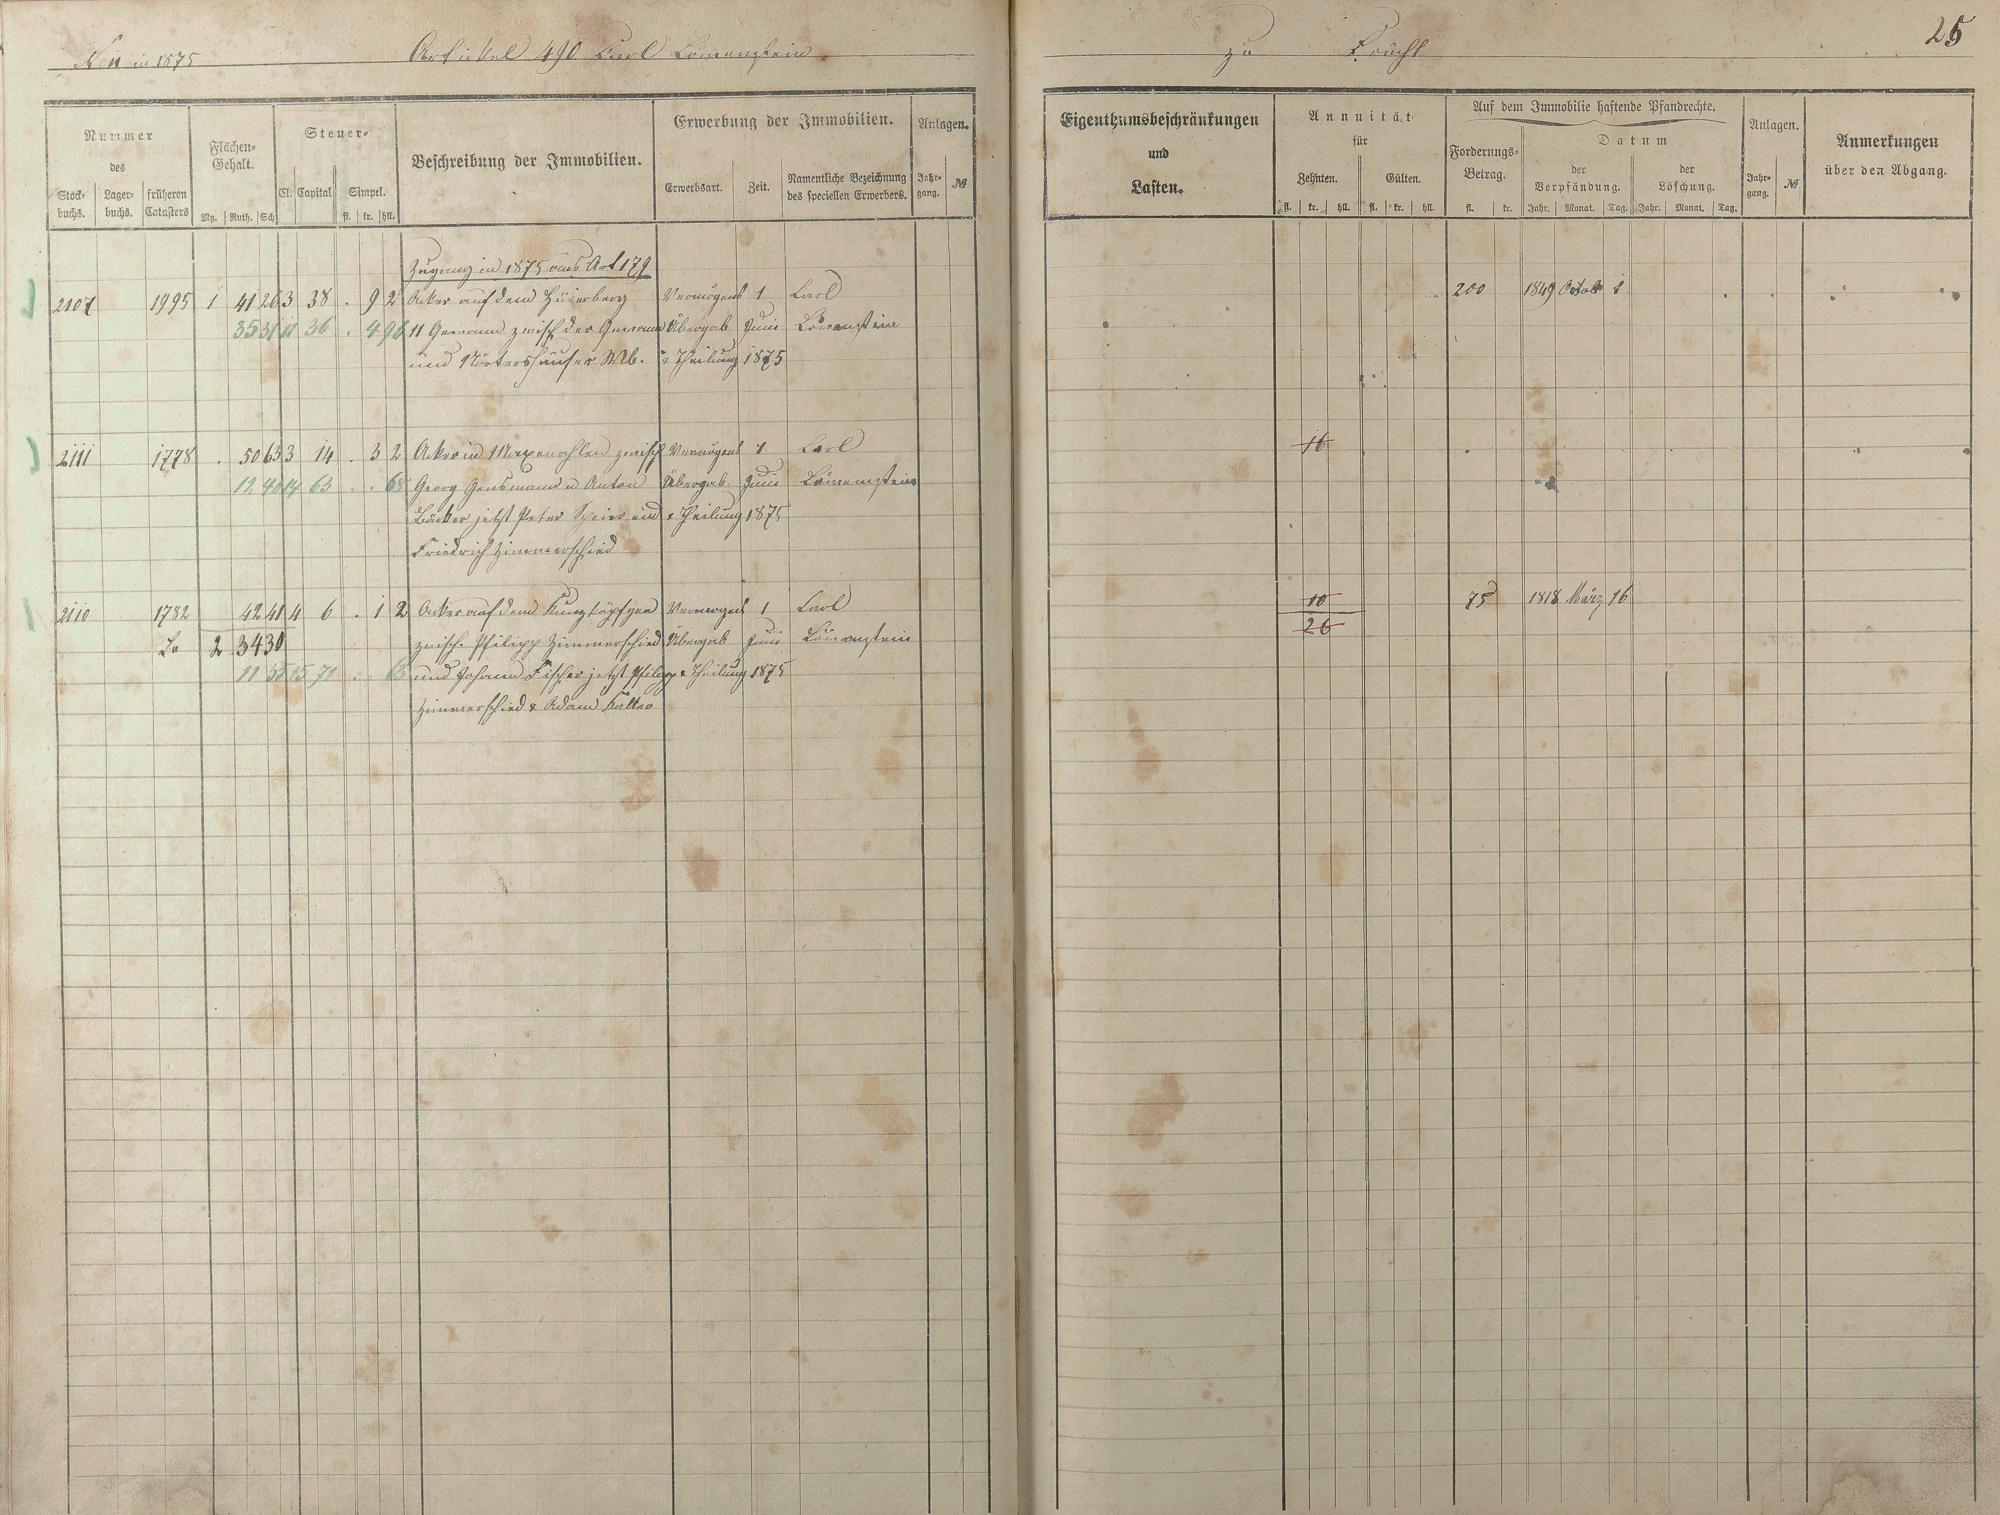 Neu in 1875 Artikel 490 Carl Löwenstein zu Frücht 25
Nummer
des
Stock-buchs. Lager-buchs. früheren Catasters
Flächen-Gehalt.
Mg. Ruth. Sch
Steuer-
Cl. Capital Simpel.
fl. kr. hll.
Beschreibung der Immobilien.
Erwerbung der Immobilien.
Erwerbsart. Zeit. Namentliche Bezeichnung des speciellen Erwerbers.
Anlagen.
Jahr-gang. №
Eigenthumsbeschränkungen
und
Lasten.
Annuität
für
Zehnten. Gülten.
fl. kr. hll. fl. kr. hll.
Auf dem Immobilie haftende Pfandrechte.
Forderungs-Betrag.
fl. kr.
Datum
der Verpfändung. der Löschung.
Jahr. Monat. Tag. Jahr. Monat. Tag.
Anlagen.
Jahr-gang. №
Anmerkungen
über den Abgang.
Zugang in 1875 aus Art 179
2107 1995 1 41 26 3 38 . 9 2 Acker auf dem Vermögens 1 Carl 200 1849 Octob 1
35 31 11 36 . 4 96 11 Gewann zwisch der Gewann Übergab Juni Löwenstein
und Nörtershäuser Wb. & Theilung 1875
2111 1778 . 50 63 3 14 . 3 2 Acker in zwisch Vermögens 1 Carl 16
12 40 14 63 . . 68 Georg Gensmann u Anton Übergab Juni Löwenstein
Bäcker jetzt Peter Speier und & Theilung 1875
Friedrich Zimmerschied
2110 1782 42 41 4 6 . 1 2 Acker auf dem Vermögens 1 Carl 10 75 1818 März 16
2 34 30 zwisch. Philipp Zimmerschied Übergab Juni Löwenstein 26
11 55 15 71 . . 63 und Johann Fischer jetzt Philipp & Theilung 1875
Zimmerschied & Adam